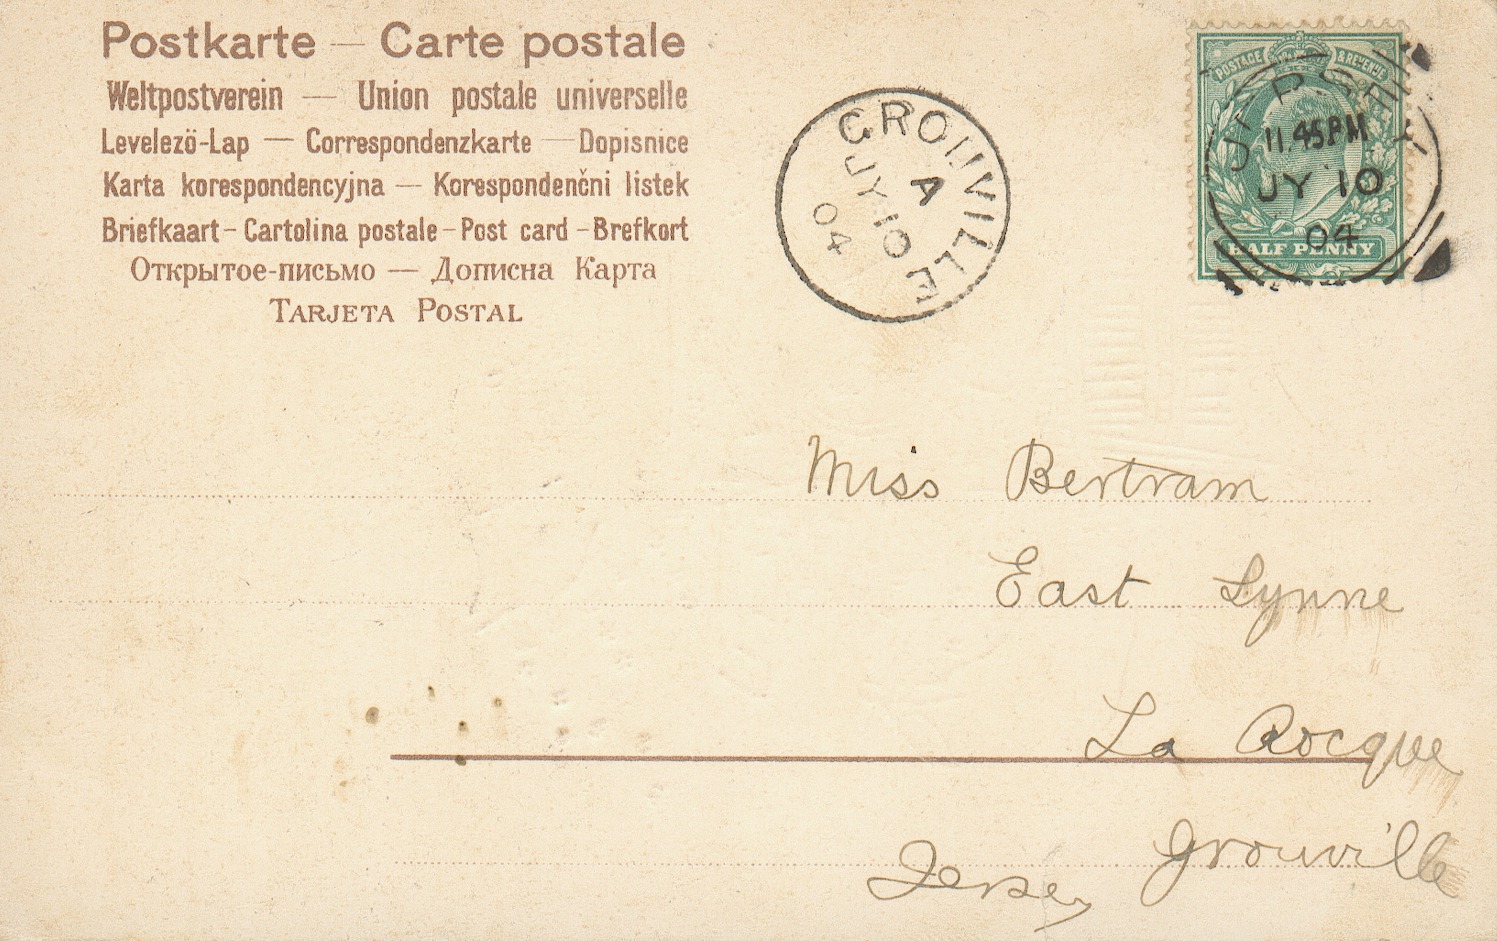 Postkarte — Carte postale
Weltpostverein — Union postale universelle
Levelezö-Lap — Correspondenzkarte — Dopisnice
Karta korespondencyjna — Korespondenčni listek
Briefkaart - Cartolina postale - Post card - Brefkort
Открытое-письмо — Дописна Карта
Tarjeta Postal
GROUVILLE
A
JY 10
04
POSTAGE & REVENUE
JERSEY
11.45PM
JY 10
04
HALF PENNY
Miss Bertram
East Lynne
La Rocque
Grouville
Jersey